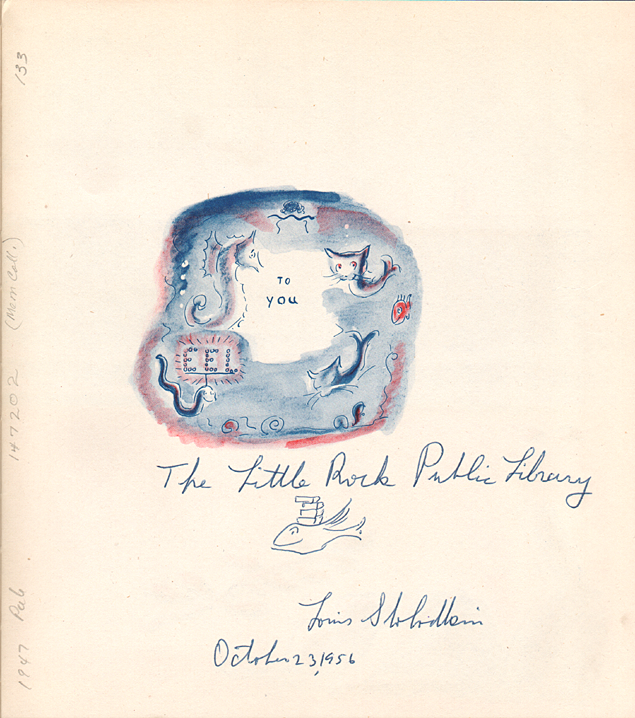 TO
you
EEL
The Little Rock Public Library
Louis Slobodkin
October 23, 1956
133
(Mem Coll.)
147202
1947 Pab